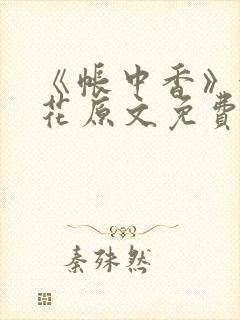 《帐中香》
花原文免費
秦殊然